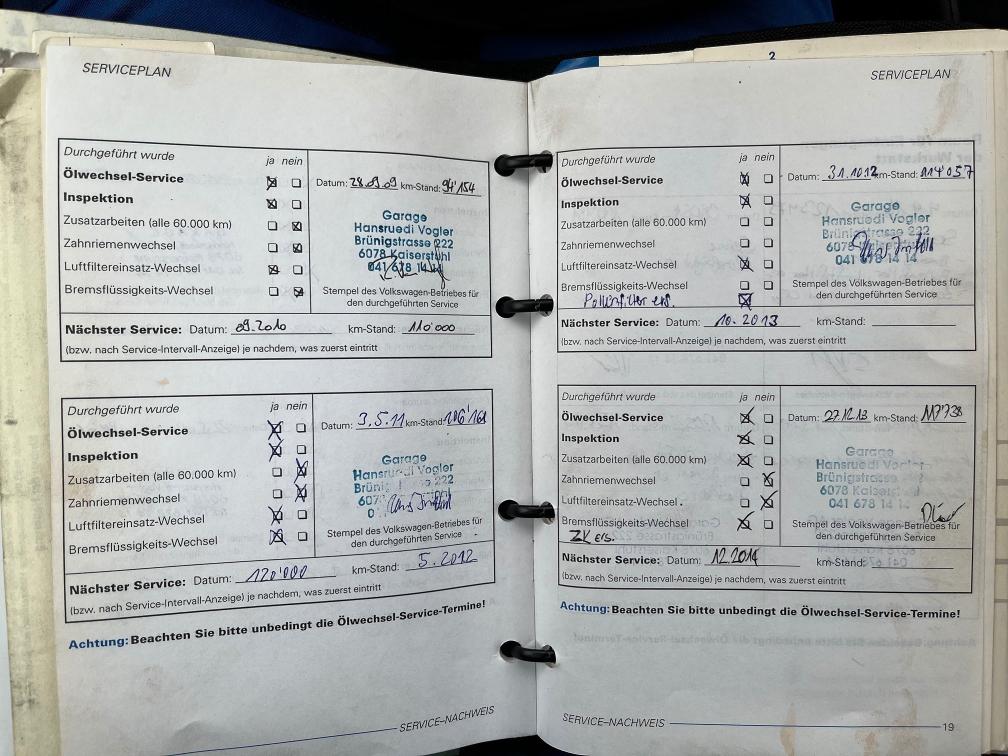 SERVICEPLAN
Durchgeführt wurde
ja nein
Ölwechsel-Service
Inspektion
Zusatzarbeiten (alle 60.000 km)
Zahnriemenwechsel
Luftfiltereinsatz-Wechsel
Bremsflüssigkeits-Wechsel
Datum: 28.09.09 km-Stand: 94'154
Garage
Hansruedi Vogler
Brünigstrasse 222
6078 Kaiserstuhl
041 678 14 14
Stempel des Volkswagen-Betriebes für
den durchgeführten Service
Nächster Service: Datum: 09.2010 km-Stand: 110'000
(bzw. nach Service-Intervall-Anzeige) je nachdem, was zuerst eintritt
Durchgeführt wurde
ja nein
Ölwechsel-Service
Inspektion
Zusatzarbeiten (alle 60.000 km)
Zahnriemenwechsel
Luftfiltereinsatz-Wechsel
Bremsflüssigkeits-Wechsel
Datum: 3.5.11 km-Stand: 106'161
Garage
Hansruedi Vogler
222
Stempel des Volkswagen-Betriebes für
den durchgeführten Service
Nächster Service: Datum: 120'000 km-Stand: 5.2012
(bzw. nach Service-Intervall-Anzeige) je nachdem, was zuerst eintritt
Achtung: Beachten Sie bitte unbedingt die Ölwechsel-Service-Termine!
SERVICE–NACHWEIS
2
SERVICEPLAN
Durchgeführt wurde
ja nein
Ölwechsel-Service
Inspektion
Zusatzarbeiten (alle 60.000 km)
Zahnriemenwechsel
Luftfiltereinsatz-Wechsel
Bremsflüssigkeits-Wechsel
Pollenfilter ers.
Datum: 31.10.12 km-Stand: 114'057
Garage
Hansruedi Vogler
Brünigstrasse 222
6078 Kaiserstuhl
041 678 14 14
Stempel des Volkswagen-Betriebes für
den durchgeführten Service
Nächster Service: Datum: 10.2013 km-Stand:
(bzw. nach Service-Intervall-Anzeige) je nachdem, was zuerst eintritt
Durchgeführt wurde
ja nein
Ölwechsel-Service
Inspektion
Zusatzarbeiten (alle 60.000 km)
Zahnriemenwechsel
Luftfiltereinsatz-Wechsel
Bremsflüssigkeits-Wechsel
ZK ers.
Datum: 27.12.13 km-Stand: 117'738
Garage
Hansruedi Vogler
Brünigstrasse
6078 Kaiserst
041 678 14
Stempel des Volkswagen-Betriebes für
den durchgeführten Service
Nächster Service: Datum: 12.2014 km-Stand:
(bzw. nach Service-Intervall-Anzeige) je nachdem, was zuerst eintritt
Achtung: Beachten Sie bitte unbedingt die Ölwechsel-Service-Termine!
SERVICE–NACHWEIS
19